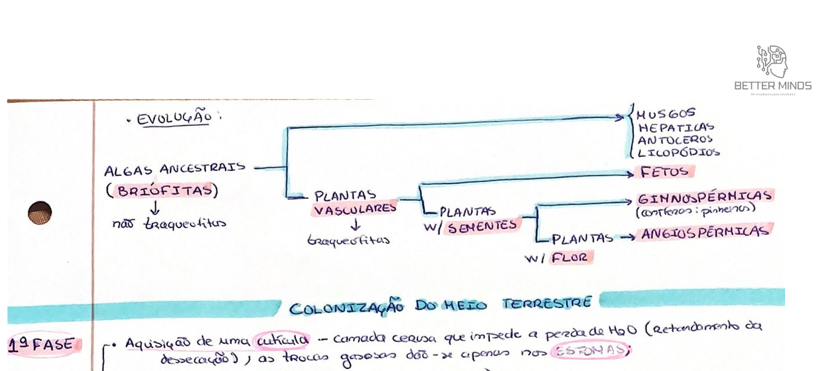 BETTER MINDS
• EVOLUÇÃO:
MUSGOS
HEPATICAS
ANTOCEROS
LICOPÓDIOS
ALGAS ANCESTRAIS
(BRIÓFITAS)
↓
não traqueofitas
FETOS
PLANTAS
VASCULARES
↓
traqueofitas
PLANTAS
W/ SEMENTES
GIMNOSPÉRMICAS
(coníferas: pinheiros)
PLANTAS → ANGIOSPÉRMICAS
W/ FLOR
COLONIZAÇÃO DO MEIO TERRESTRE
1ª FASE
• Aquisição de uma cutícula – camada cerosa que impede a perda de H2O (Retardamento da
dessecação), as trocas gasosas dão-se apenas nos ESTOMAS;